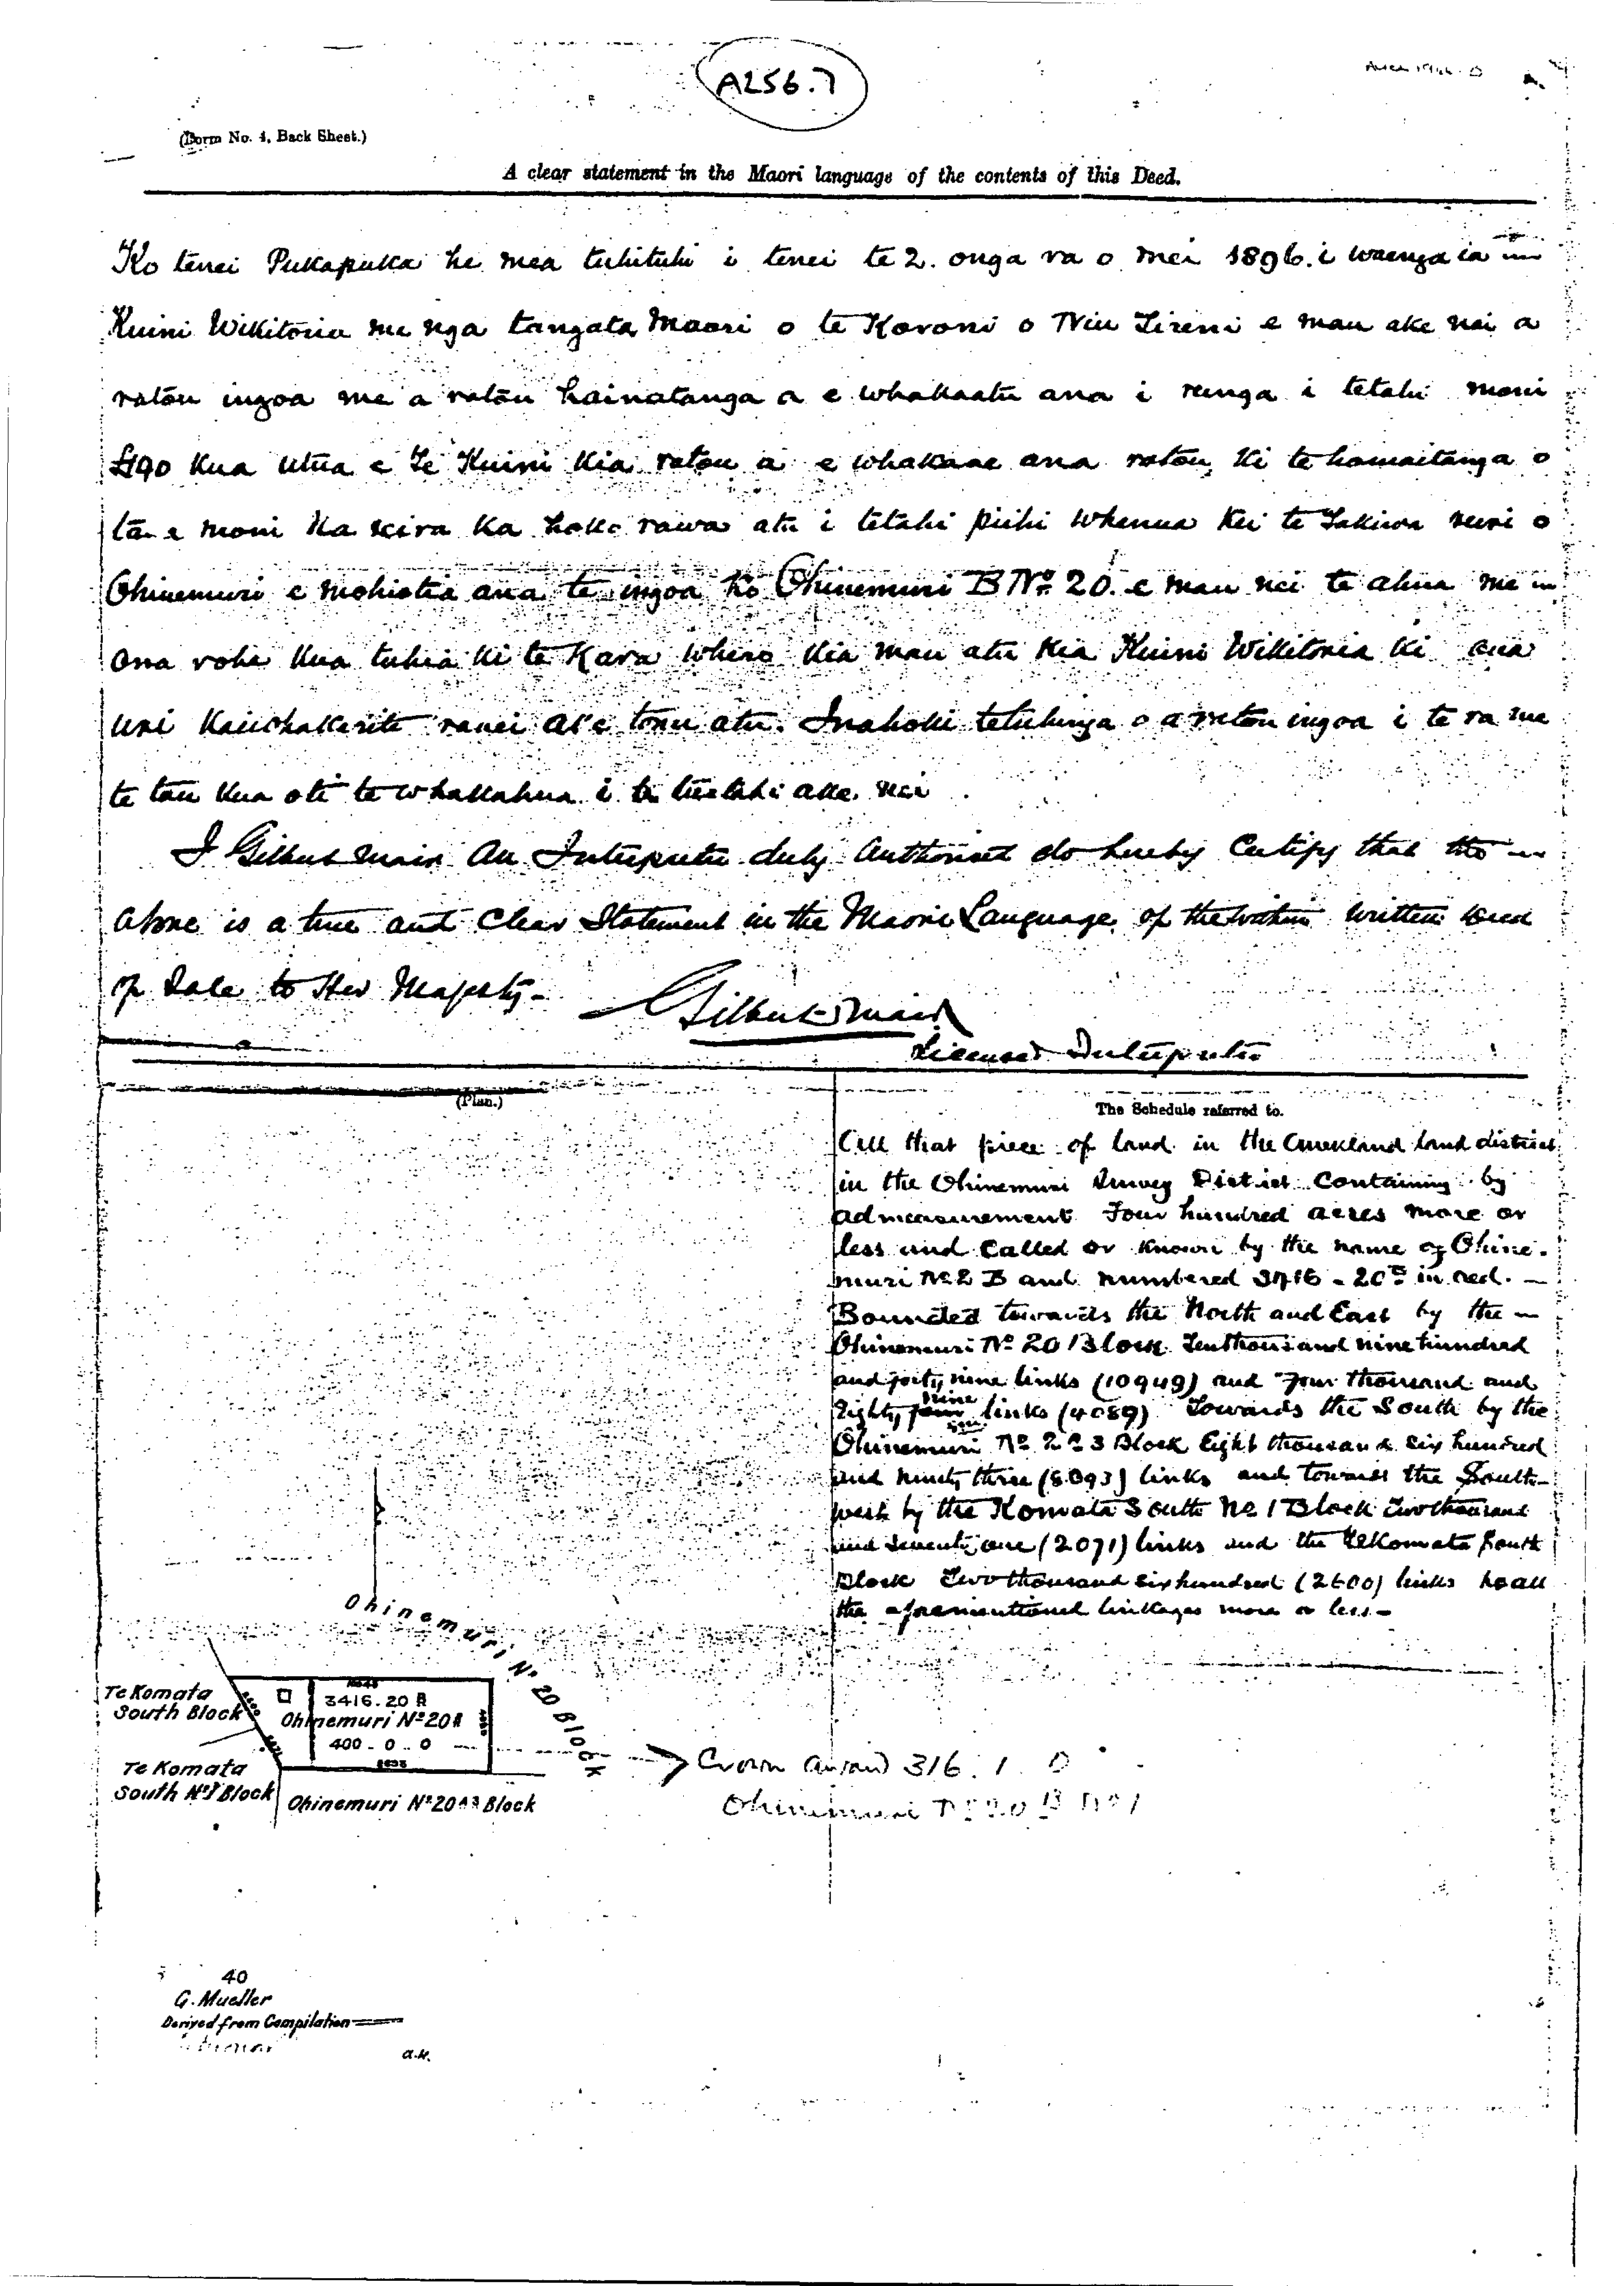 A256.7
(Form No. 4, Back Sheet.)
A clear statement in the Maori language of the contents of this Deed.
Ko tenei Pukapuka he mea tuhituhi i tenei te 2. onga ra o mei 1896. i waenga ia
Kuini Wikitoria me nga tangata Maori o te Koroni o Niu Tireni e mau ake nei a
ratou ingoa me a ratou hainatanga a e whakaatu ana i runga i tetahi moni
£190 kua utua e Te Kuini kia ratou a e whakaae ana ratou ki te homaitanga o
taua moni ka reira ka hoko rawa atu i tetahi piihi whenua kei te Takiwa ruri o
Ohinemuri e mohiotia ana te ingoa ko Ohinemuri B No. 20. e mau nei te ahua me
ona rohe kua tuhia ki te Kara whero kia mau atu kia Kuini Wikitoria ki ana
uri kaiwhakarite ranei ake tonu atu. Inahoki te tuhinga o a ratou ingoa i te ra me
te tau kua oti te whakahua i te tuatahi ake nei
I Gilbert Mair An Interpreter duly Authorised do hereby Certify that the
above is a true and Clear Statement in the Maori Language of the within written Deed
of Sale to Her Majesty.
Gilbert Mair
Licensed Interpreter
(Plan.)
The Schedule referred to.
All that piece of land in the Auckland land district
in the Ohinemuri Survey District Containing by
admeasurement Four hundred acres more or
less and called or known by the name of Ohine-
muri No 2 B and numbered 3416-20 in red.
Bounded towards the North and East by the
Ohinemuri No 20 Block Ten thousand nine hundred
and forty nine links (10949) and Four thousand and
Eighty nine links (4089) Towards the South by the
Ohinemuri No Block Eight thousand six hundred
and ninety three (8693) links and towards the South-
west by the Komata South No 1 Block Two thousand
and seventy one (2071) links and the Te Komata South
Block Two thousand six hundred (2600) links be all
the aforementioned linkages more or less
Ohinemuri No 20 Block
Te Komata
South Block
3416.20 B
Ohinemuri No 20 B
400 - 0 - 0
Te Komata
South No 1 Block
Ohinemuri No 20 Block
Crown award 316. 1. 0
Ohinemuri No 20 B No 1
40
G. Mueller
Derived from Compilation
a.H.